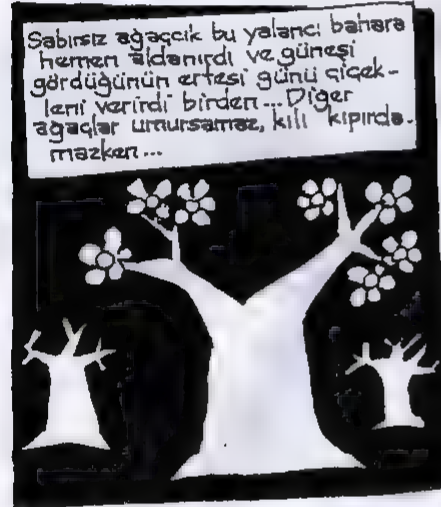 Sabırsız ağaçcık bu yalancı bahara
hemen aldanırdı ve güneşi
gördüğünün ertesi günü çiçek-
leni verirdi birden... Diğer
ağaçlar umursamaz, kılı kıpırda-
mazken...